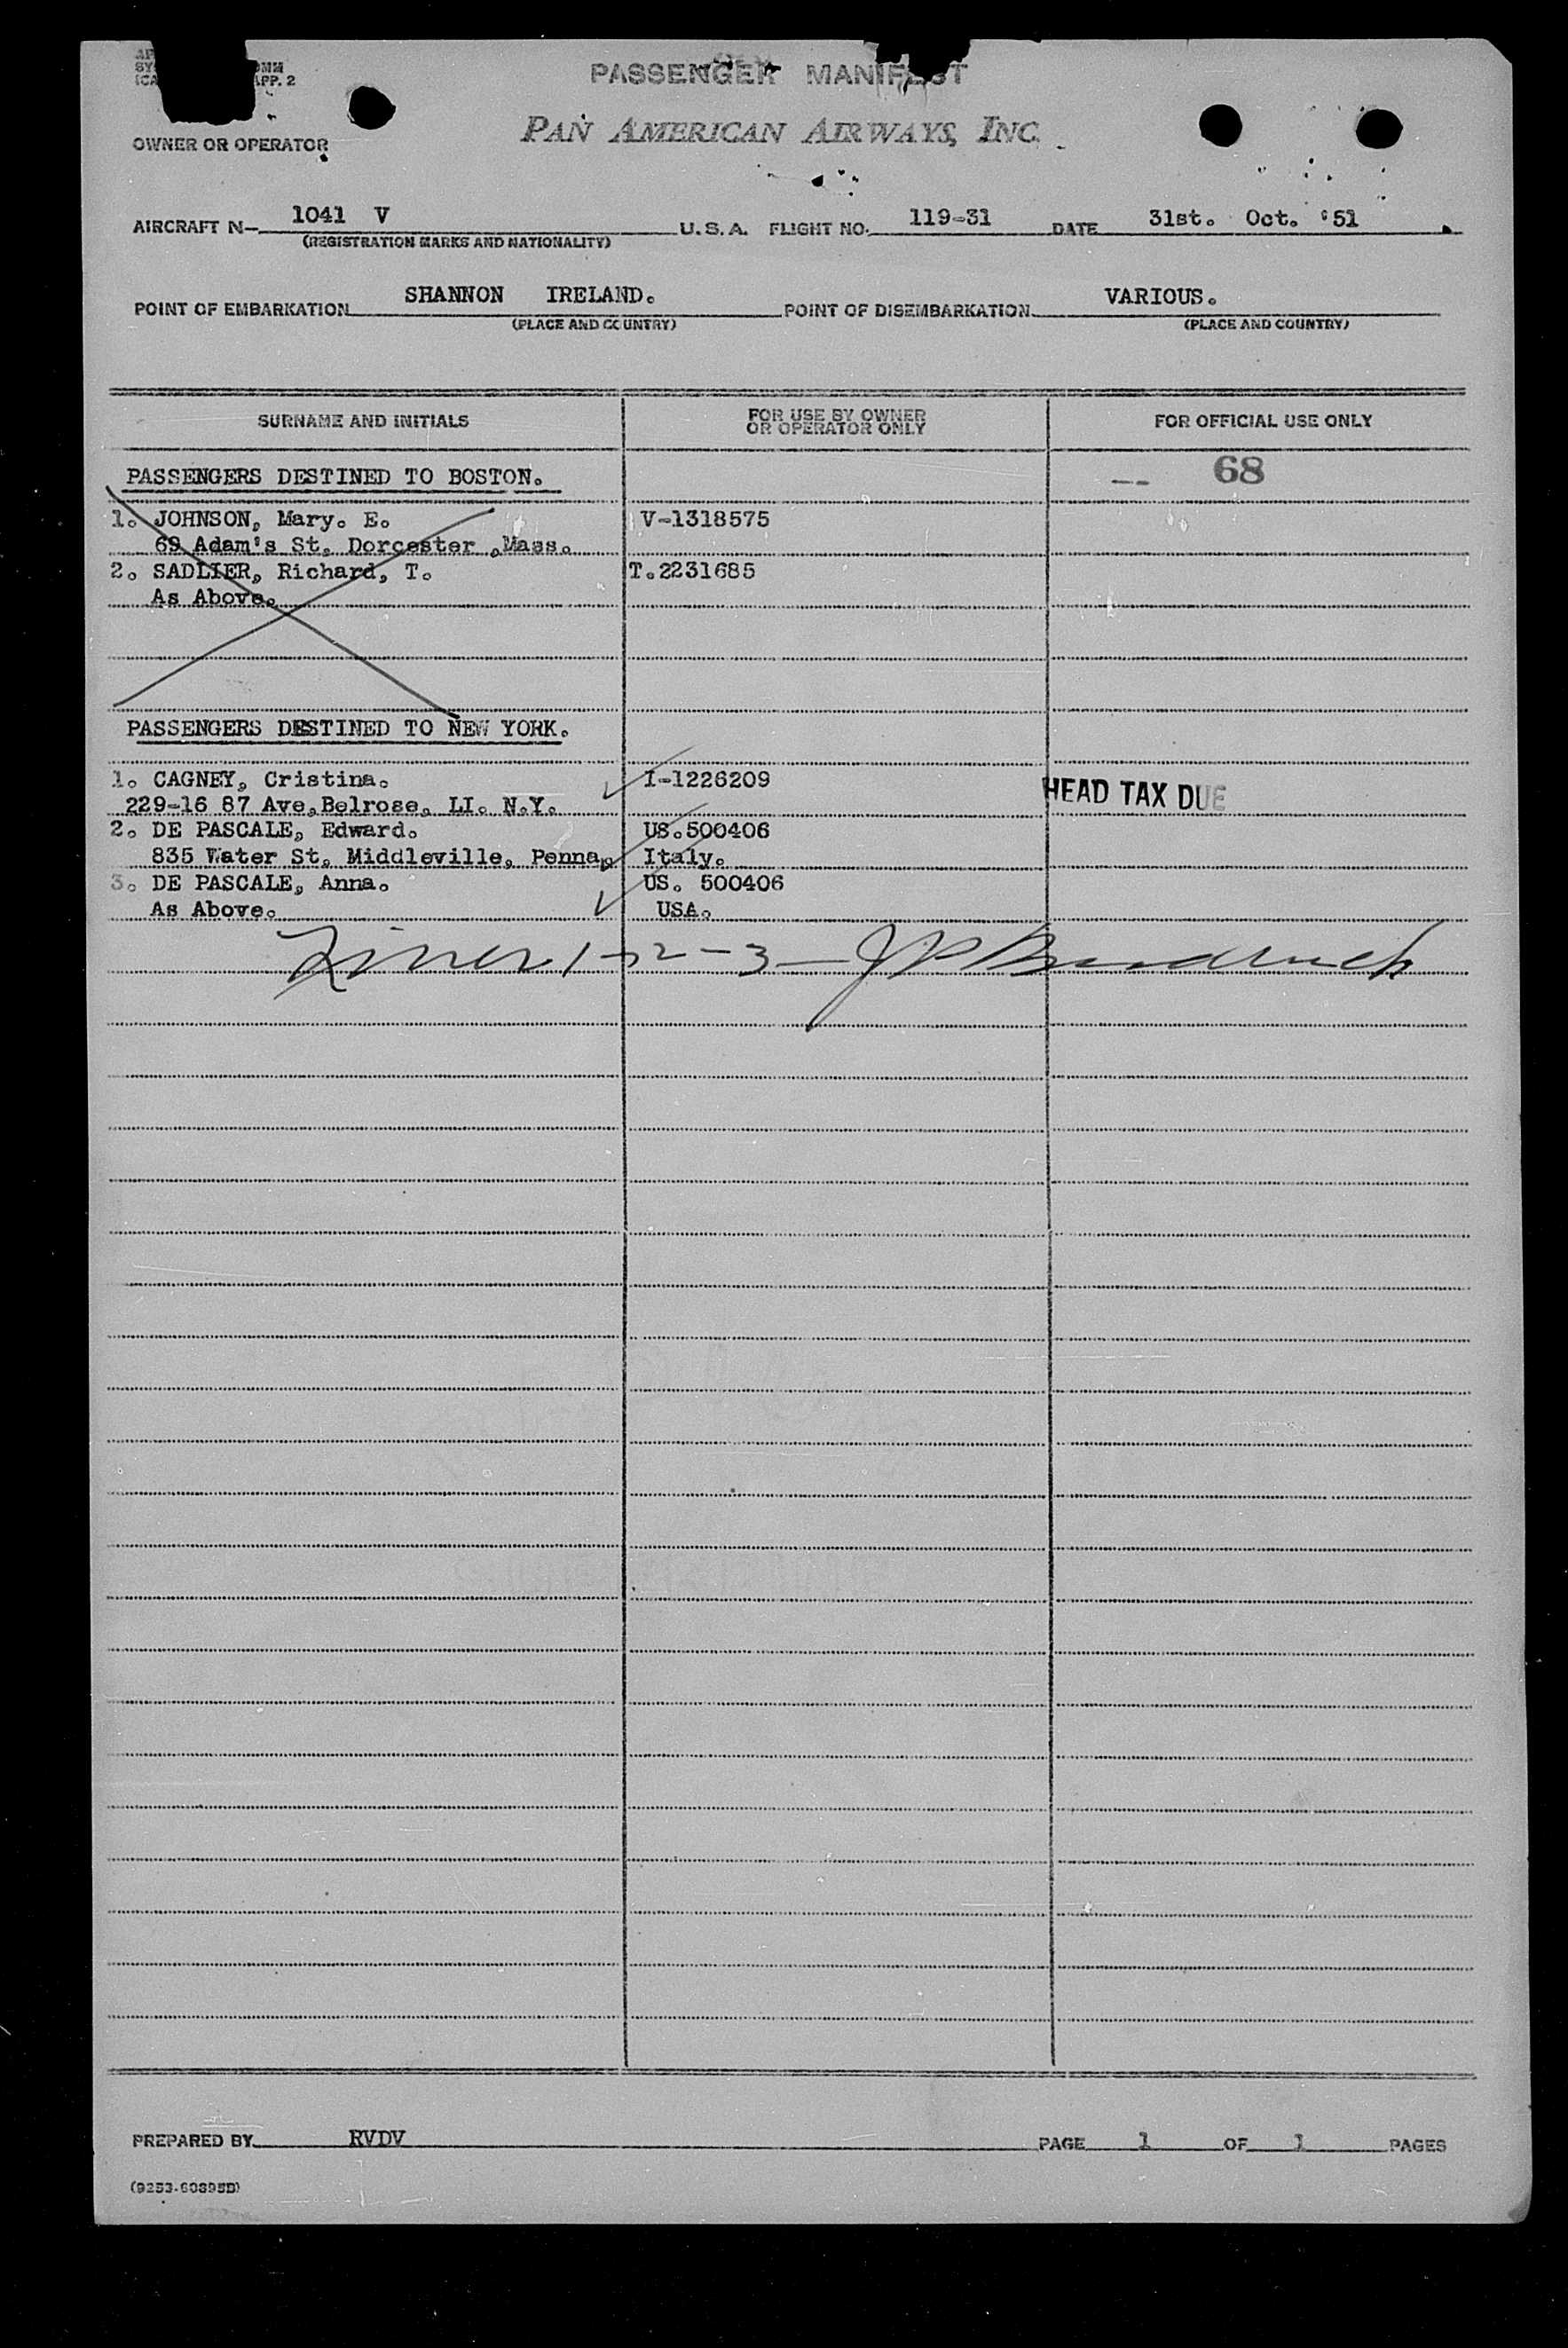 PASSENGER MANIFEST
APP. 2
PAN AMERICAN AIRWAYS, INC.
OWNER OR OPERATOR
AIRCRAFT N- 1041 V U.S.A. FLIGHT NO. 119-31 DATE 31st. Oct. '51
(REGISTRATION MARKS AND NATIONALITY)
POINT OF EMBARKATION SHANNON IRELAND. POINT OF DISEMBARKATION VARIOUS.
(PLACE AND COUNTRY) (PLACE AND COUNTRY)
SURNAME AND INITIALS FOR USE BY OWNER OR OPERATOR ONLY FOR OFFICIAL USE ONLY
PASSENGERS DESTINED TO BOSTON. -- 68
1. JOHNSON, Mary. E. V-1318575
69 Adam's St. Dorcester ,Mass.
2. SADLIER, Richard, T. T.2231685
As Above.
PASSENGERS DESTINED TO NEW YORK.
1. CAGNEY, Cristina. I-1226209
229-16 87 Ave,Belrose, LI. N.Y. HEAD TAX DUE
2. DE PASCALE, Edward. US.500406
835 Water St. Middleville, Penna. Italy.
3. DE PASCALE, Anna. US. 500406
As Above. USA.
1-2-3-
PREPARED BY RVDV PAGE 1 OF 1 PAGES
(9253-60895D)